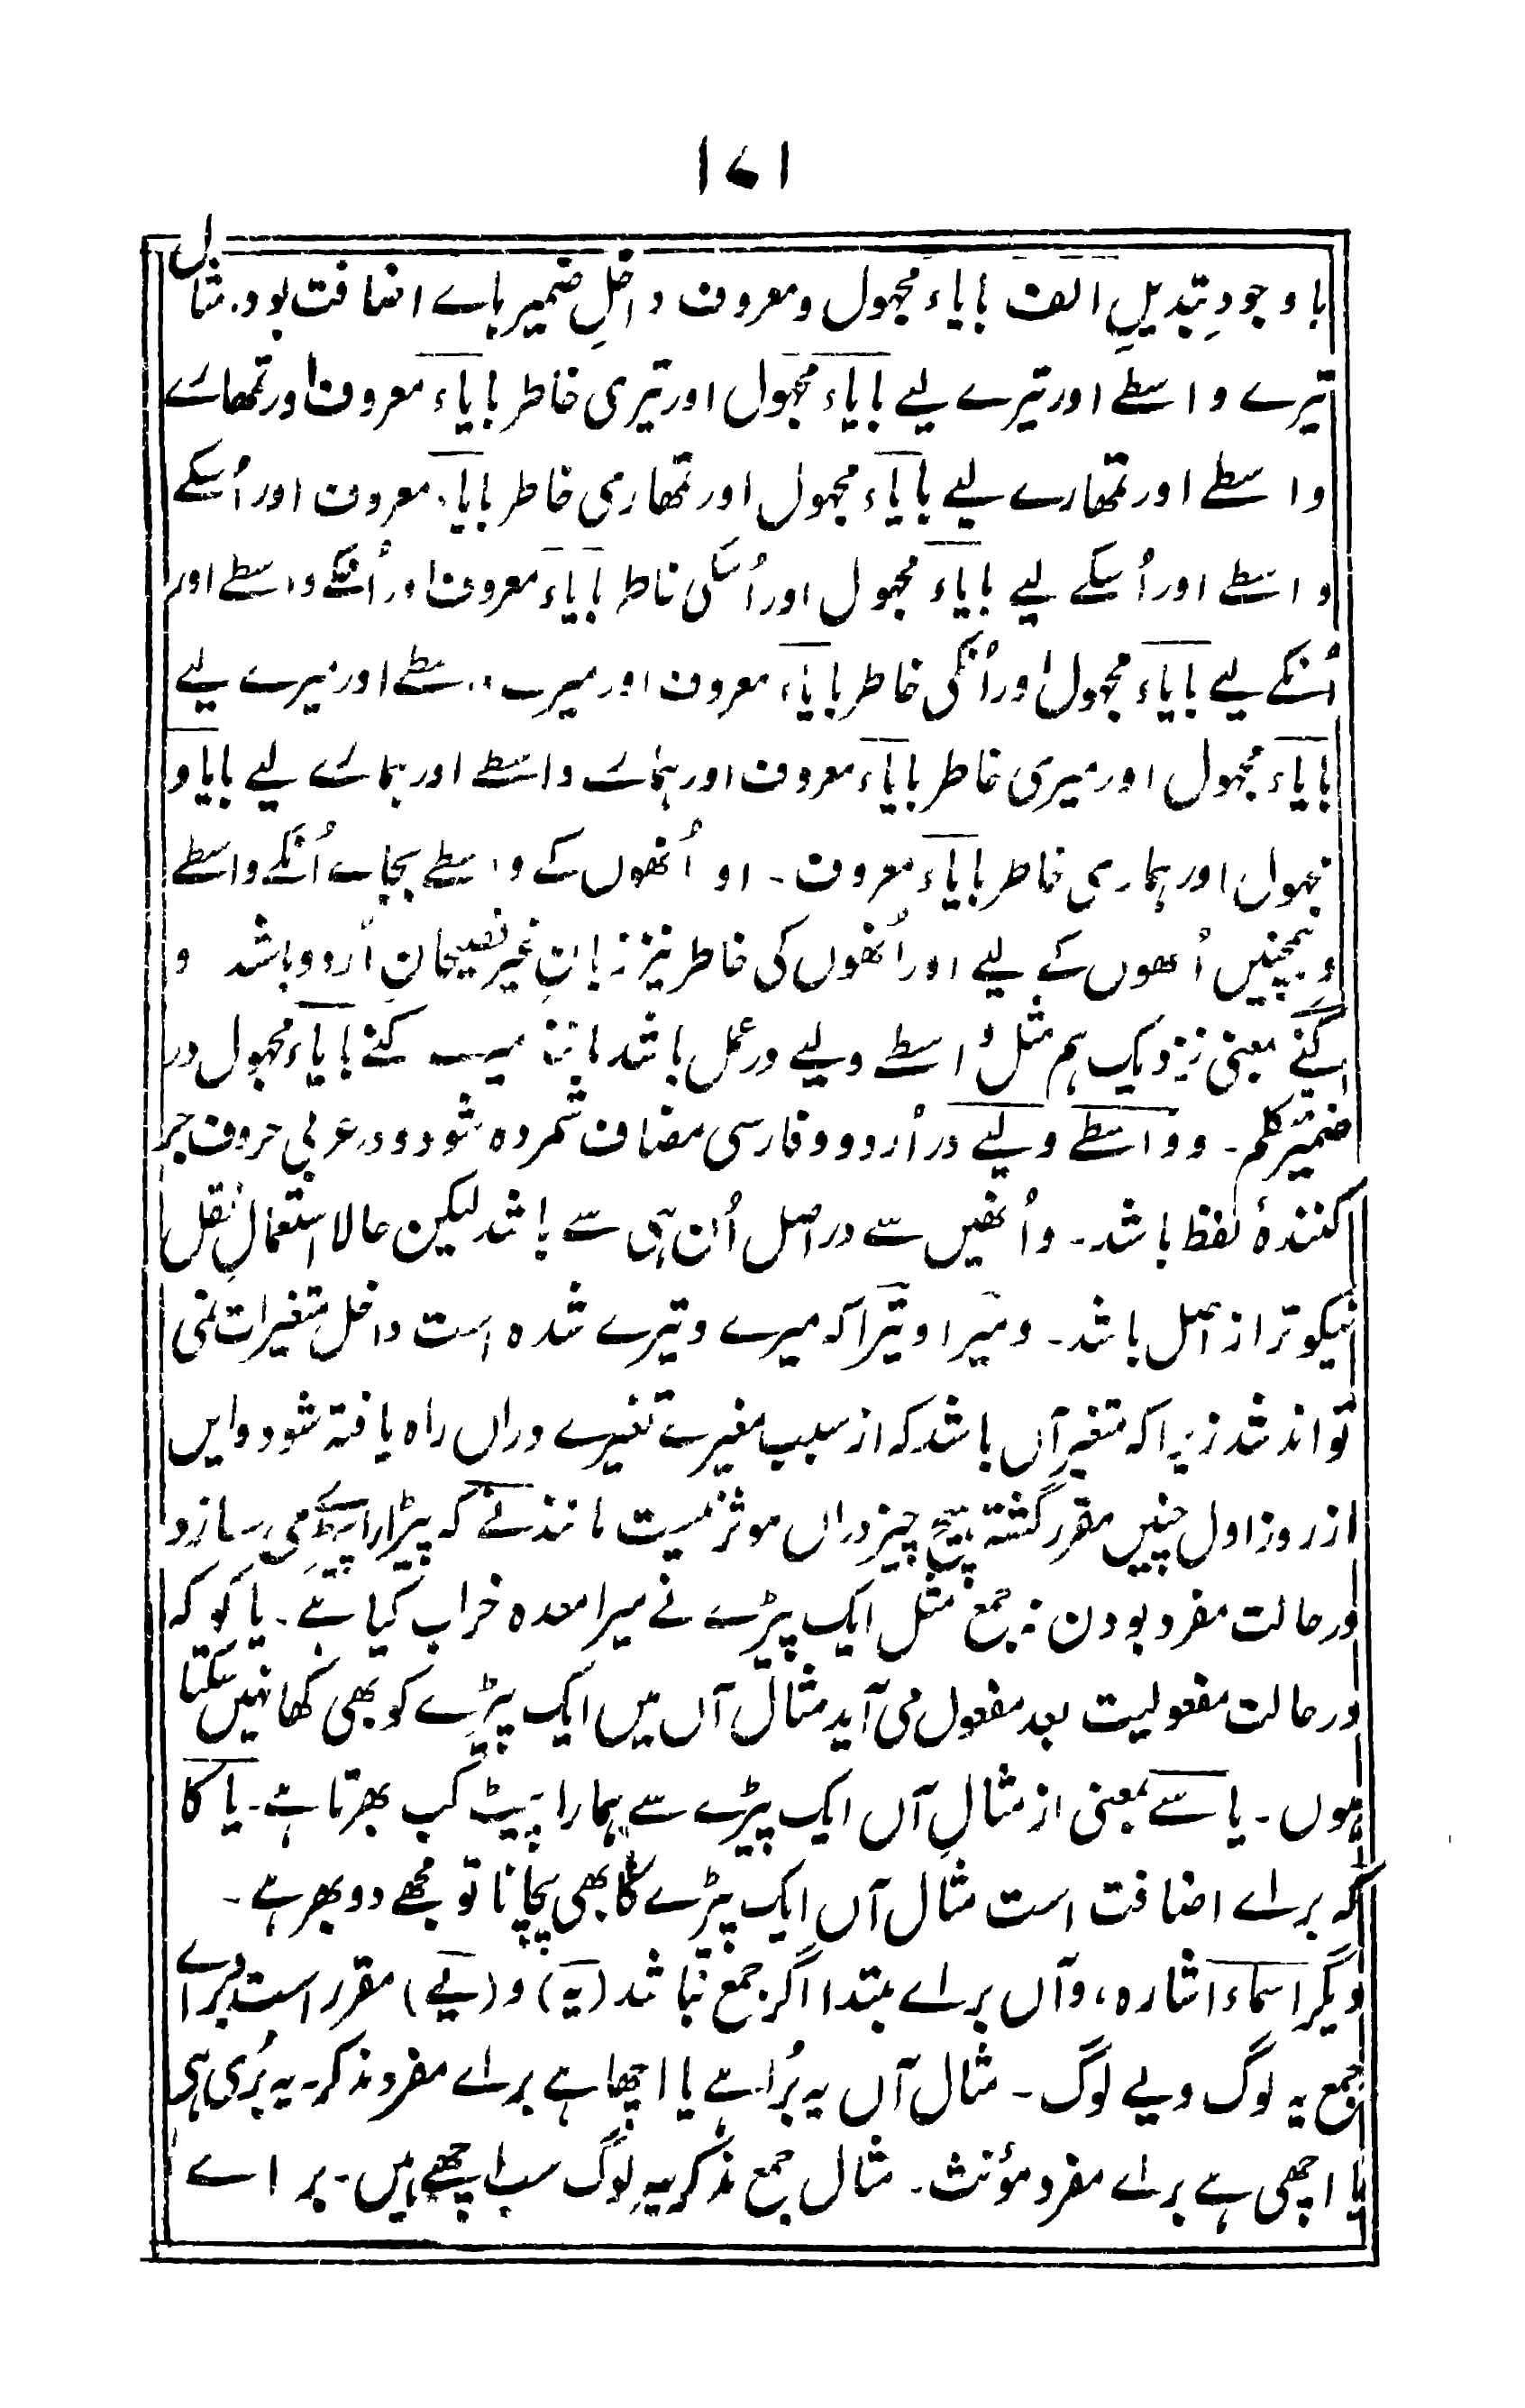 ۱۷۱
با وجودِ تبدیلِ الف بایاء مجہول و معروف داخلِ ضمیر ہاے اضافت بود. مثال
تیرے واسطے اور تیرے لیے بایاء مجہول اور تیری خاطر بایاء معروف اور تمھارے
واسطے اور تمھارے لیے بایاء مجہول اور تمھاری خاطر بایاء معروف اور اُسکے
واسطے اور اُسکے لیے بایاء مجہول اور اُسکی خاطر بایاء معروف اور اُنکے واسطے اور
اُنکے لیے بایاء مجہول اور اُنکی خاطر بایاء معروف اور میرے واسطے اور میرے لیے
بایاء مجہول اور میری خاطر بایاء معروف اور ہمارے واسطے اور ہمارے لیے بایاء
مجہول اور ہماری خاطر بایاء معروف ۔ او اُنھوں کے واسطے بجاے اُنکے واسطے
و ہمچنیں اُنھوں کے لیے اور اُنھوں کی خاطر نیز زبانِ غیر فصیحانِ اُردو باشد و
کنے معنی نزدیک ہم مثل واسطے و لیے در عمل باشد مانند میرے کنے بایاء مجہول در
ضمیر متکلم ۔ و واسطے و لیے در اُردو و فارسی مضاف شمردہ شود و در عربی حروف جر
کنندۂ لفظ باشد ۔ و اُنھیں سے در اصل اُن ہی سے باشد لیکن حالا استعمالِ نقل
نیکو تر از اصل باشد ۔ و میرا و تیرا کہ میرے و تیرے شدہ است داخل متغیرات نمی
تواند شد زیرا کہ متغیر آں باشد کہ از سبب مغیرے تغیرے دراں راہ یافتہ شود و ایں
از روز اول چنیں مقرر گشتہ ہیچ چیز دراں موثر نیست مانند نے کہ پیڑا را پیڑے می سازد
در حالت مفرد بودن نہ جمع مثل ایک پیڑے نے میرا معدہ خراب کیا ہے ۔ یا کو کہ
در حالت مفعولیت بعد مفعول می آید مثال آں میں ایک پیڑے کو بھی کھا نہیں سکتا
ہوں ۔ یا سے بمعنی از مثالِ آں ایک پیڑے سے ہمارا پیٹ کب بھرتا ہے ۔ یا کا
کہ براے اضافت است مثال آں ایک پیڑے کا بھی پچانا تو مجھے دوبھر ہے ۔
دیگر اسماء اشارہ، و آں براے مبتدا اگر جمع نباشد (یہ) و (یے) مقرر است و براے
جمع یہ لوگ و یے لوگ ۔ مثال آں یہ بُرا ہے یا اچھا ہے براے مفرد مذکر ۔ یہ بُری ہی
یا اچھی ہے براے مفرد مؤنث ۔ مثال جمع مذکر یہ لوگ سب اچھے ہیں ۔ براے